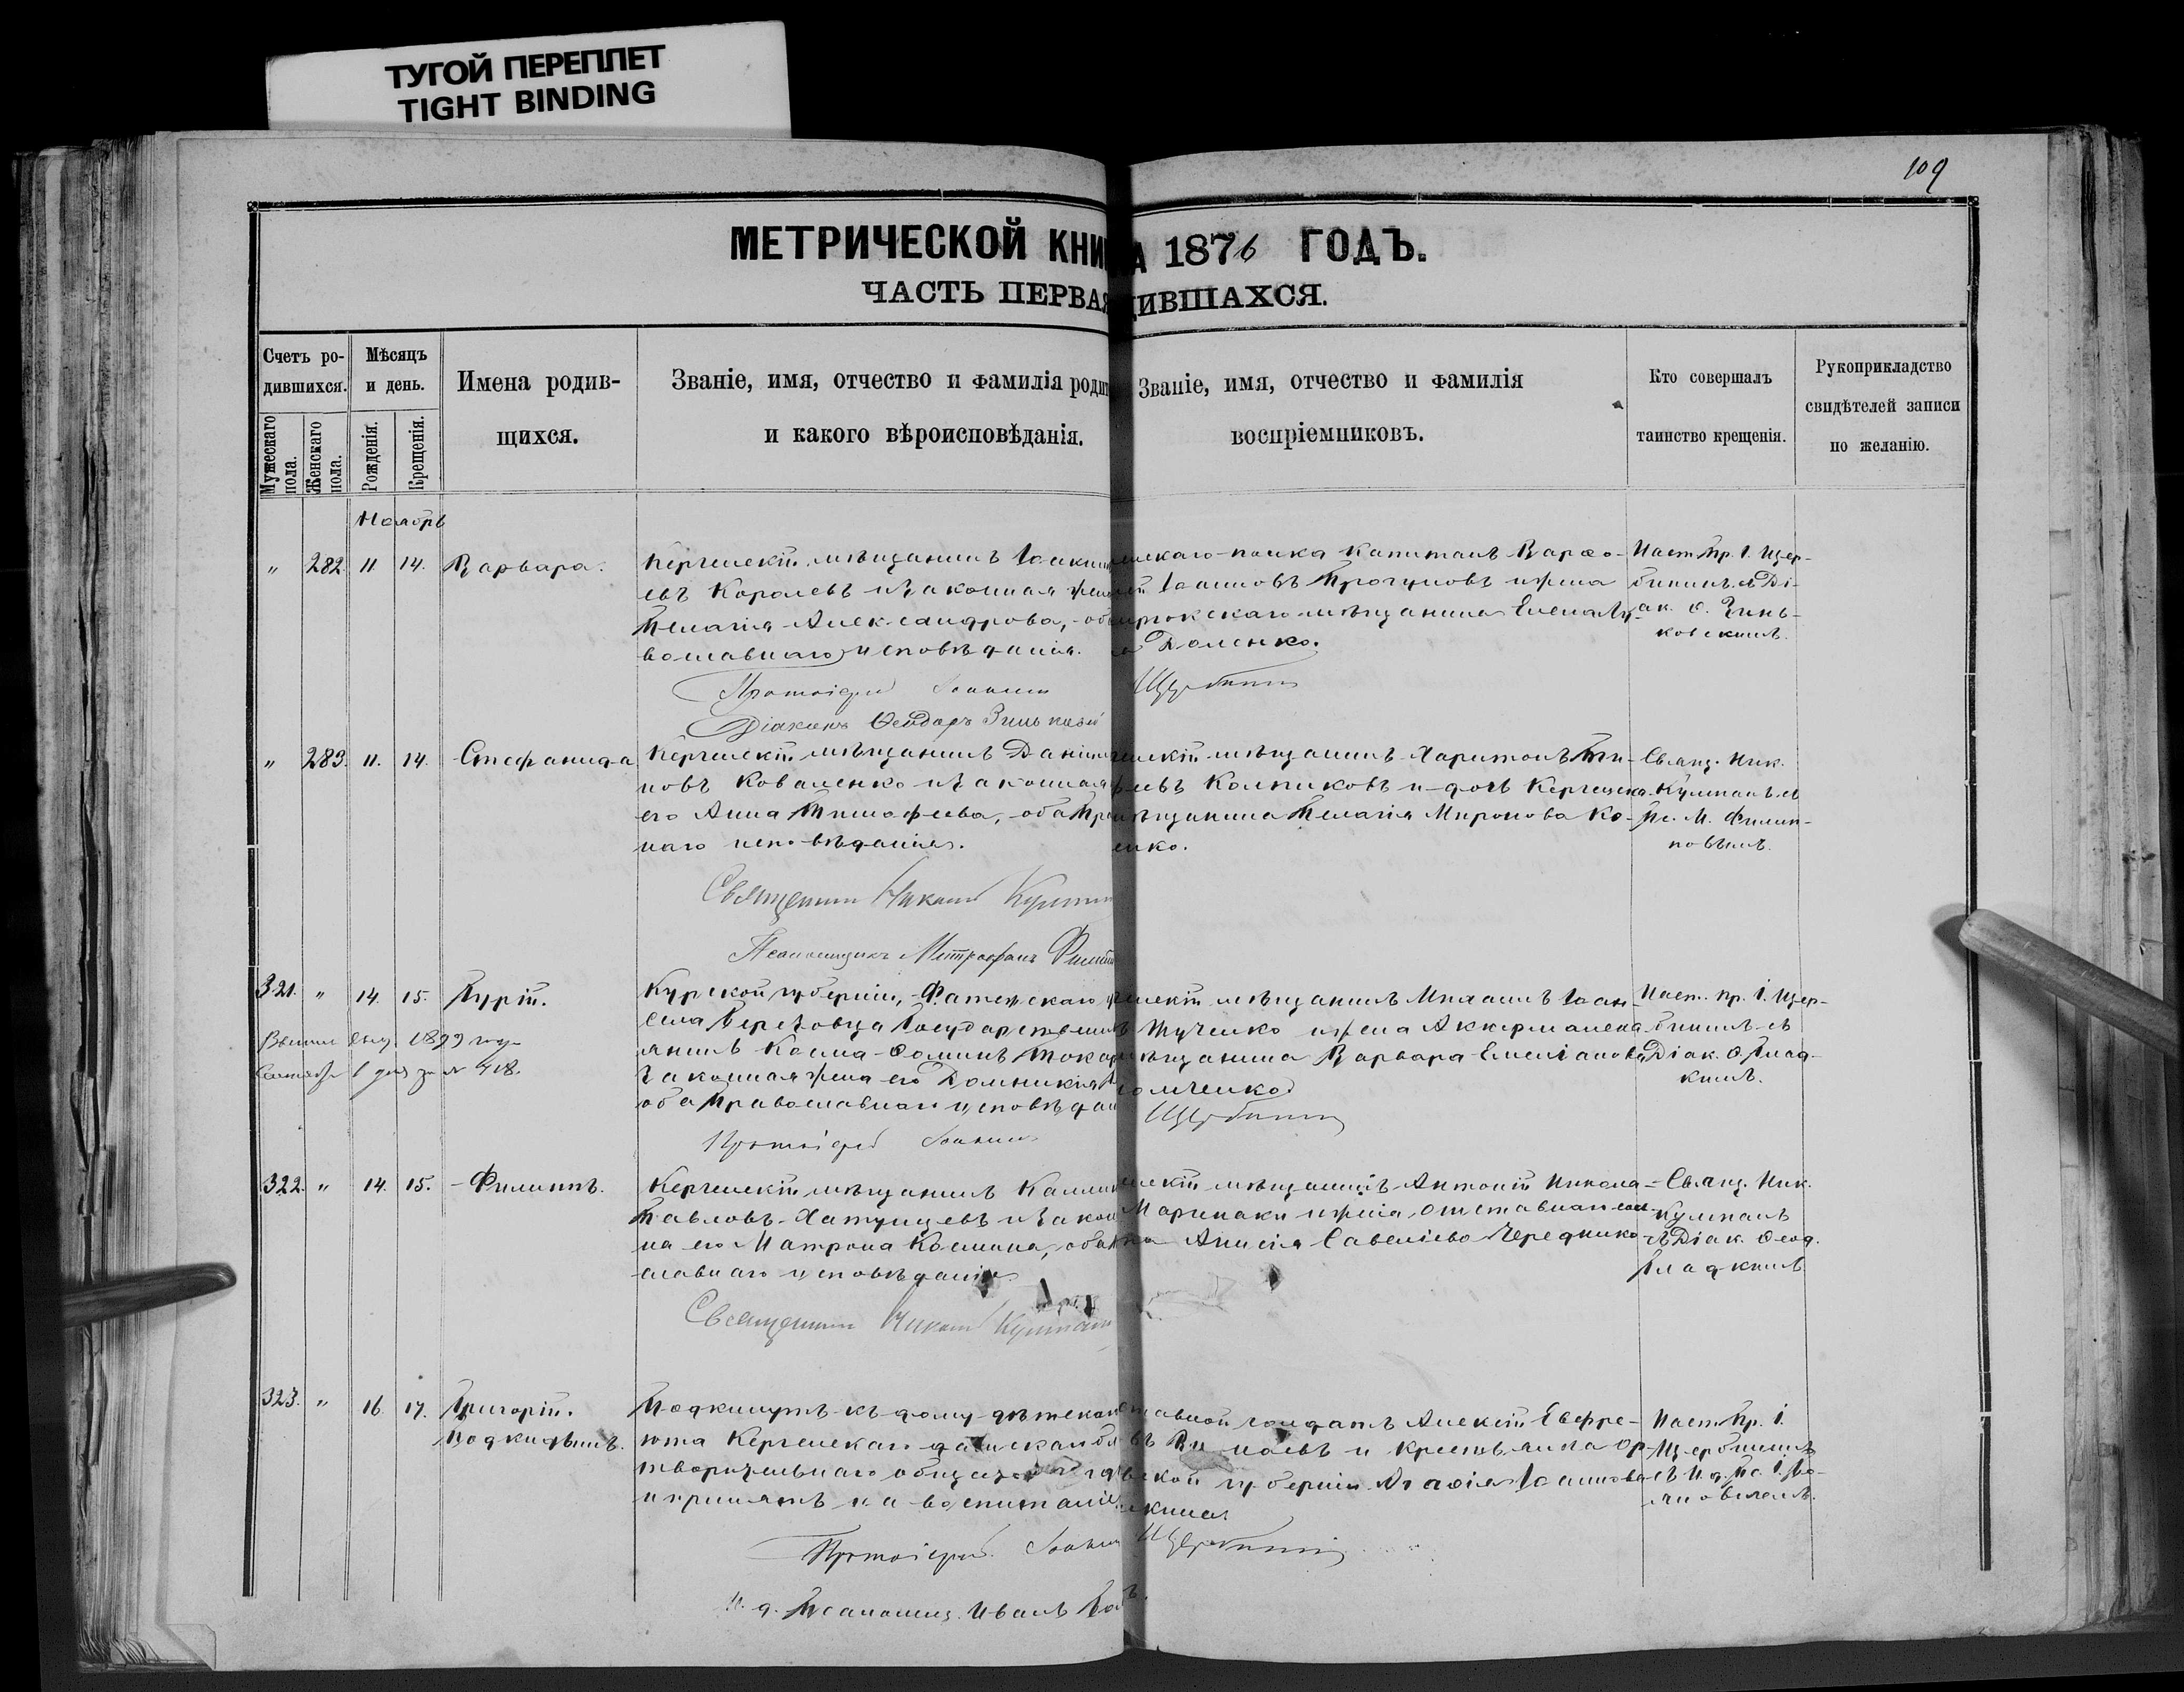 ТУГОЙ ПЕРЕПЛЕТ
TIGHT BINDING
109
МЕТРИЧЕСКОЙ КНИ А 1876 ГОДЪ.
ЧАСТЬ ПЕРВАЯ ДИВШАХСЯ.
Счетъ ро-
дившихся.
Мужескаго пола.
Женскаго пола.
Мѣсяцъ
и день.
Рожденія.
Крещенія.
Имена родив-
щихся.
Званіе, имя, отчество и фамилія родит
и какого вѣроисповѣданія.
Званіе, имя, отчество и фамилія
воспріемниковъ.
Кто совершалъ
таинство крещенія.
Рукоприкладство
свидѣтелей записи
по желанію.
Ноябрь
" 282. 11. 14. Варвара.
Керченскій мѣщанинъ Іоаки
евъ Королевъ и законная жен
Пелагія Александрова, - об
вославнаго исповѣданія.
скаго полка Капитанъ Варѳо-
Іоанновъ Прогуновъ и жена
мѣщанина Елена
Доленко.
Наст. Пр. І. Щер-
бининъ съ Ді-
ак. Ѳ. Зинь-
ковскимъ.
Протоіерей Іоаннъ Щербининъ
Діаконъ Ѳеодоръ Зиньковскій
" 283. 11. 14. Стефанида
Керченскій мѣщанинъ Даніил
новъ Коваленко и законная
его Анна Тимофеева, - оба Пра
наго исповѣданія.
ченскій мѣщанинъ Харитонъ Ти-
феевъ Колпиковъ и дочь Керченска
мѣщанина Пелагія Миронова Ко-
енко.
Свящ. Ник.
Кулманъ съ
Пс. М. Филип-
повымъ.
Священникъ Николай Кулман
Псаломщикъ Митрофанъ Филип
321. " 14. 15. Гурій.
Выпись выд. 1899 году
Сентября 6 дня за № 418.
Курской губерніи, Фатежскаго у
села Березовца Государственны
янинъ Косма Ѳоминъ Токар
Законная жена его Домникія
оба Православнаго исповѣдан
енскій мѣщанинъ Михаилъ Іоан-
Тученко и жена Аккерманска
мѣщанина Варвара Емеліанова
омченко
Наст. Пр. І. Щер-
бининъ съ
Діак. Ѳ. Глад-
кимъ.
Протоіерей Іоаннъ Щербининъ
322. " 14. 15. Филиппъ.
Керченскій мѣщанинъ Каллин
Павловъ Хатунцевъ и закон
на его Матрона Космина, оба
славнаго исповѣданія.
скій мѣщанинъ Антоній Никола-
Маринаки и жена отставнаго
Анисія Савеліева Чередников
Свящ. Ник.
Кулманъ
съ Діак. Ѳеод.
Гладкимъ
Священникъ Николай Кулман
323. " 16. 17. Григорій.
Подкидышъ.
Подкинутъ къ дому дѣтскаго
юта Керченскаго дамскаго бл
творительнаго общества
и принятъ на воспитаніе.
тавной солдатъ Алексій Евфре-
въ и крестьянка Ор-
ской губерніи Агаѳія Іоаннова
кина
Наст. Пр. І.
Щербининъ
съ И. д. Пс. І.
Протоіерей Іоаннъ Щербининъ
И. д. Псаломщ. Иванъ